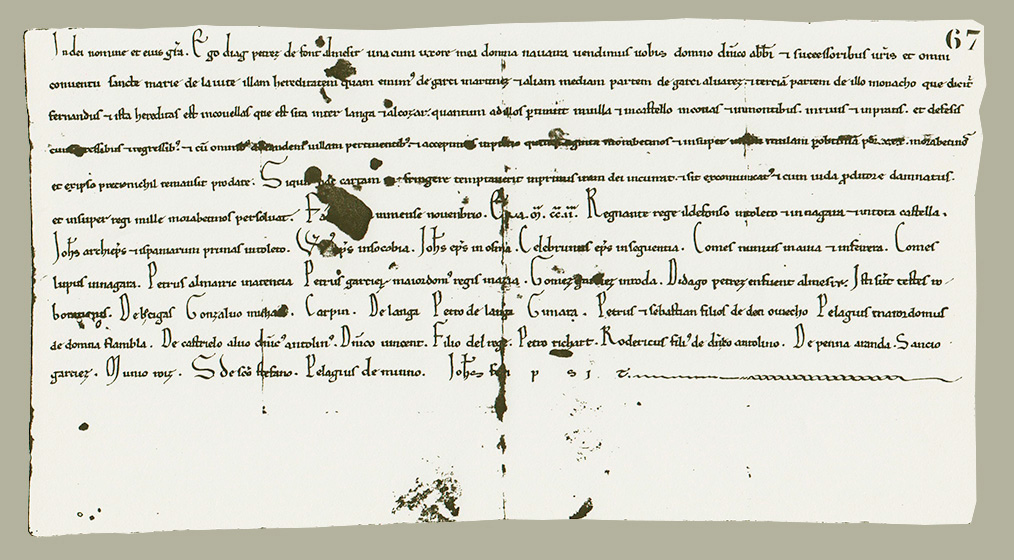 67
In dei nomine et eius gr̃a. Ego diag petrez de font almesir una cum uxore mea domna nauarra uendimus uobis domno dñico abbĩ ⁊ successoribus ur̃is et omni
conuentu sancte marie de la uite illam hereditatem quam emim᷒ de garci martinez ⁊ aliam mediam partem de garci aluarez ⁊ tercia partem de illo monacho que dicit̃
fernandus ⁊ ista hereditas est in couellas que est sita inter langa ⁊ alcozar. quantum ad illos ꝑtinuit in uilla ⁊ in castello in cotias ⁊ in montibus. in riuis ⁊ in pratis. et defesis
cum gressibus ⁊ regressib᷒. ⁊ cũ omnib᷒ ad eandem uillam pertinentib᷒. ⁊ accepimus in p̃cio quadraginta morabetinos ⁊ insuper mulam ꝓ bonam ꝑ xxx. morabetinos
et ex ipso precio nichil remansit pro dare. Siquis hac cartam infringere temptauerit in primus iram dei incurrat. ⁊ sit excomunicat᷒ ⁊ cum iuda ꝓditore damnatus.
et insuper regi mille morabetinos persoluat. Facta in mense nouenbrio. Era. M̃. cc. ii. Regnante rege ildefonso in toleto ⁊ in nagara ⁊ in tota castella.
Joh̃s archiep̃s ⁊ ispaniarum primas in toleto. ep̃s in socobia. Joh̃s ep̃s in osma. Celebrunus ep̃s in seguentia. Comes nunnus in auia ⁊ in ferrera. Comes
lupus in nagara. Petrus almaric in atencia Petrus garciez maiordom᷒ regis in aza. Gomez in roda. Didago petrez in fuent almesir. Isti sũt testes ro
boratores. De heigas Gonzaluo Carpin. De langa Petro de langa Gimara. Petrus ⁊ sebastian filios de don ouecho Pelagius maiordomus
de domna flambla. De castrielo aluo dñic᷒ antolin᷒. Dñico uincent. Filio del roge. Petro richart. Rodericus fili᷒ de dñico antolino. De penna aranda. Sancio
garciez. Munio roiz. S de sc̃o stefano. Pelagius de nunno. Joh̃es p s i t.